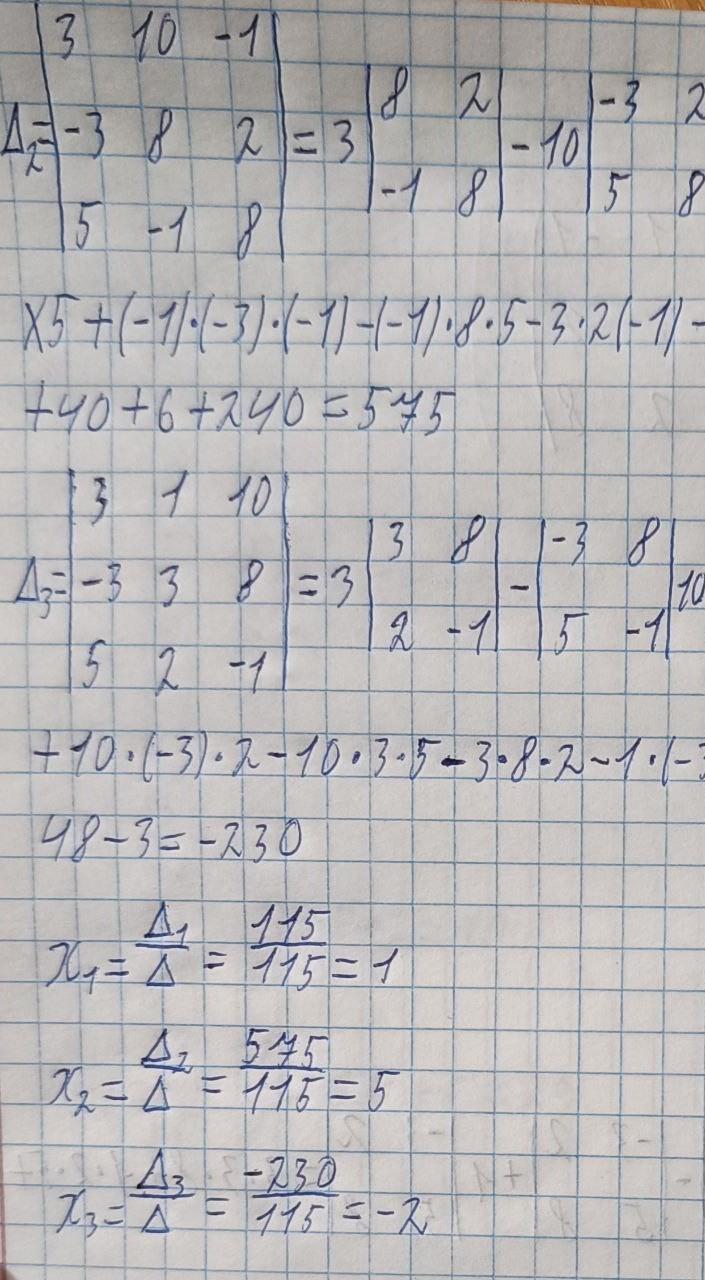 Δ₂ = |3 10 -1; -3 8 2; 5 -1 8| = 3 |8 2; -1 8| - 10 |-3 2; 5 8|
x5 + (-1)·(-3)·(-1) - (-1)·8·5 - 3·2(-1) -
+40 + 6 + 240 = 575
Δ₃ = |3 1 10; -3 3 8; 5 2 -1| = 3 |3 8; 2 -1| - |-3 8; 5 -1| 10
+10·(-3)·2 - 10·3·5 - 3·8·2 - 1·(-3
48 - 3 = -230
x₁ = Δ₁/Δ = 115/115 = 1
x₂ = Δ₂/Δ = 575/115 = 5
x₃ = Δ₃/Δ = -230/115 = -2